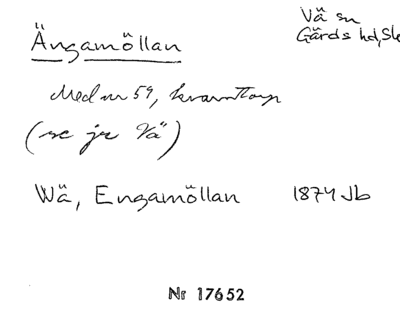 Ängamöllan
Vä sn
Gärds hd, Sk
Med nr 59, kvarntomp
(se jr Vä)
Wä, Engamöllan 1874 Jb
Nr 17652